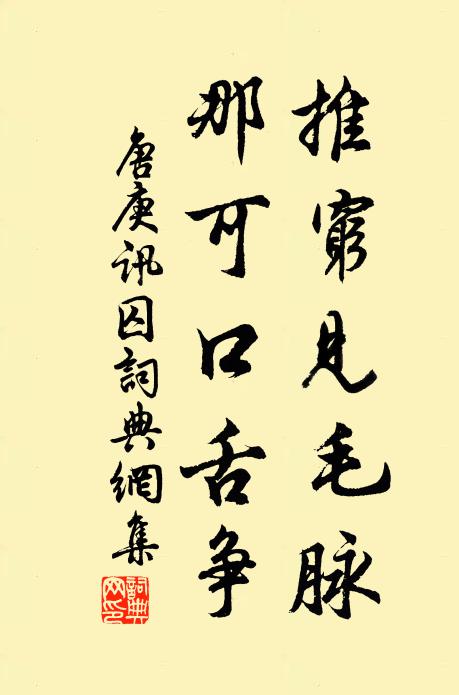 推窮見毛脉
那可口舌争
唐庚訊囚詞典網集
詞典网印